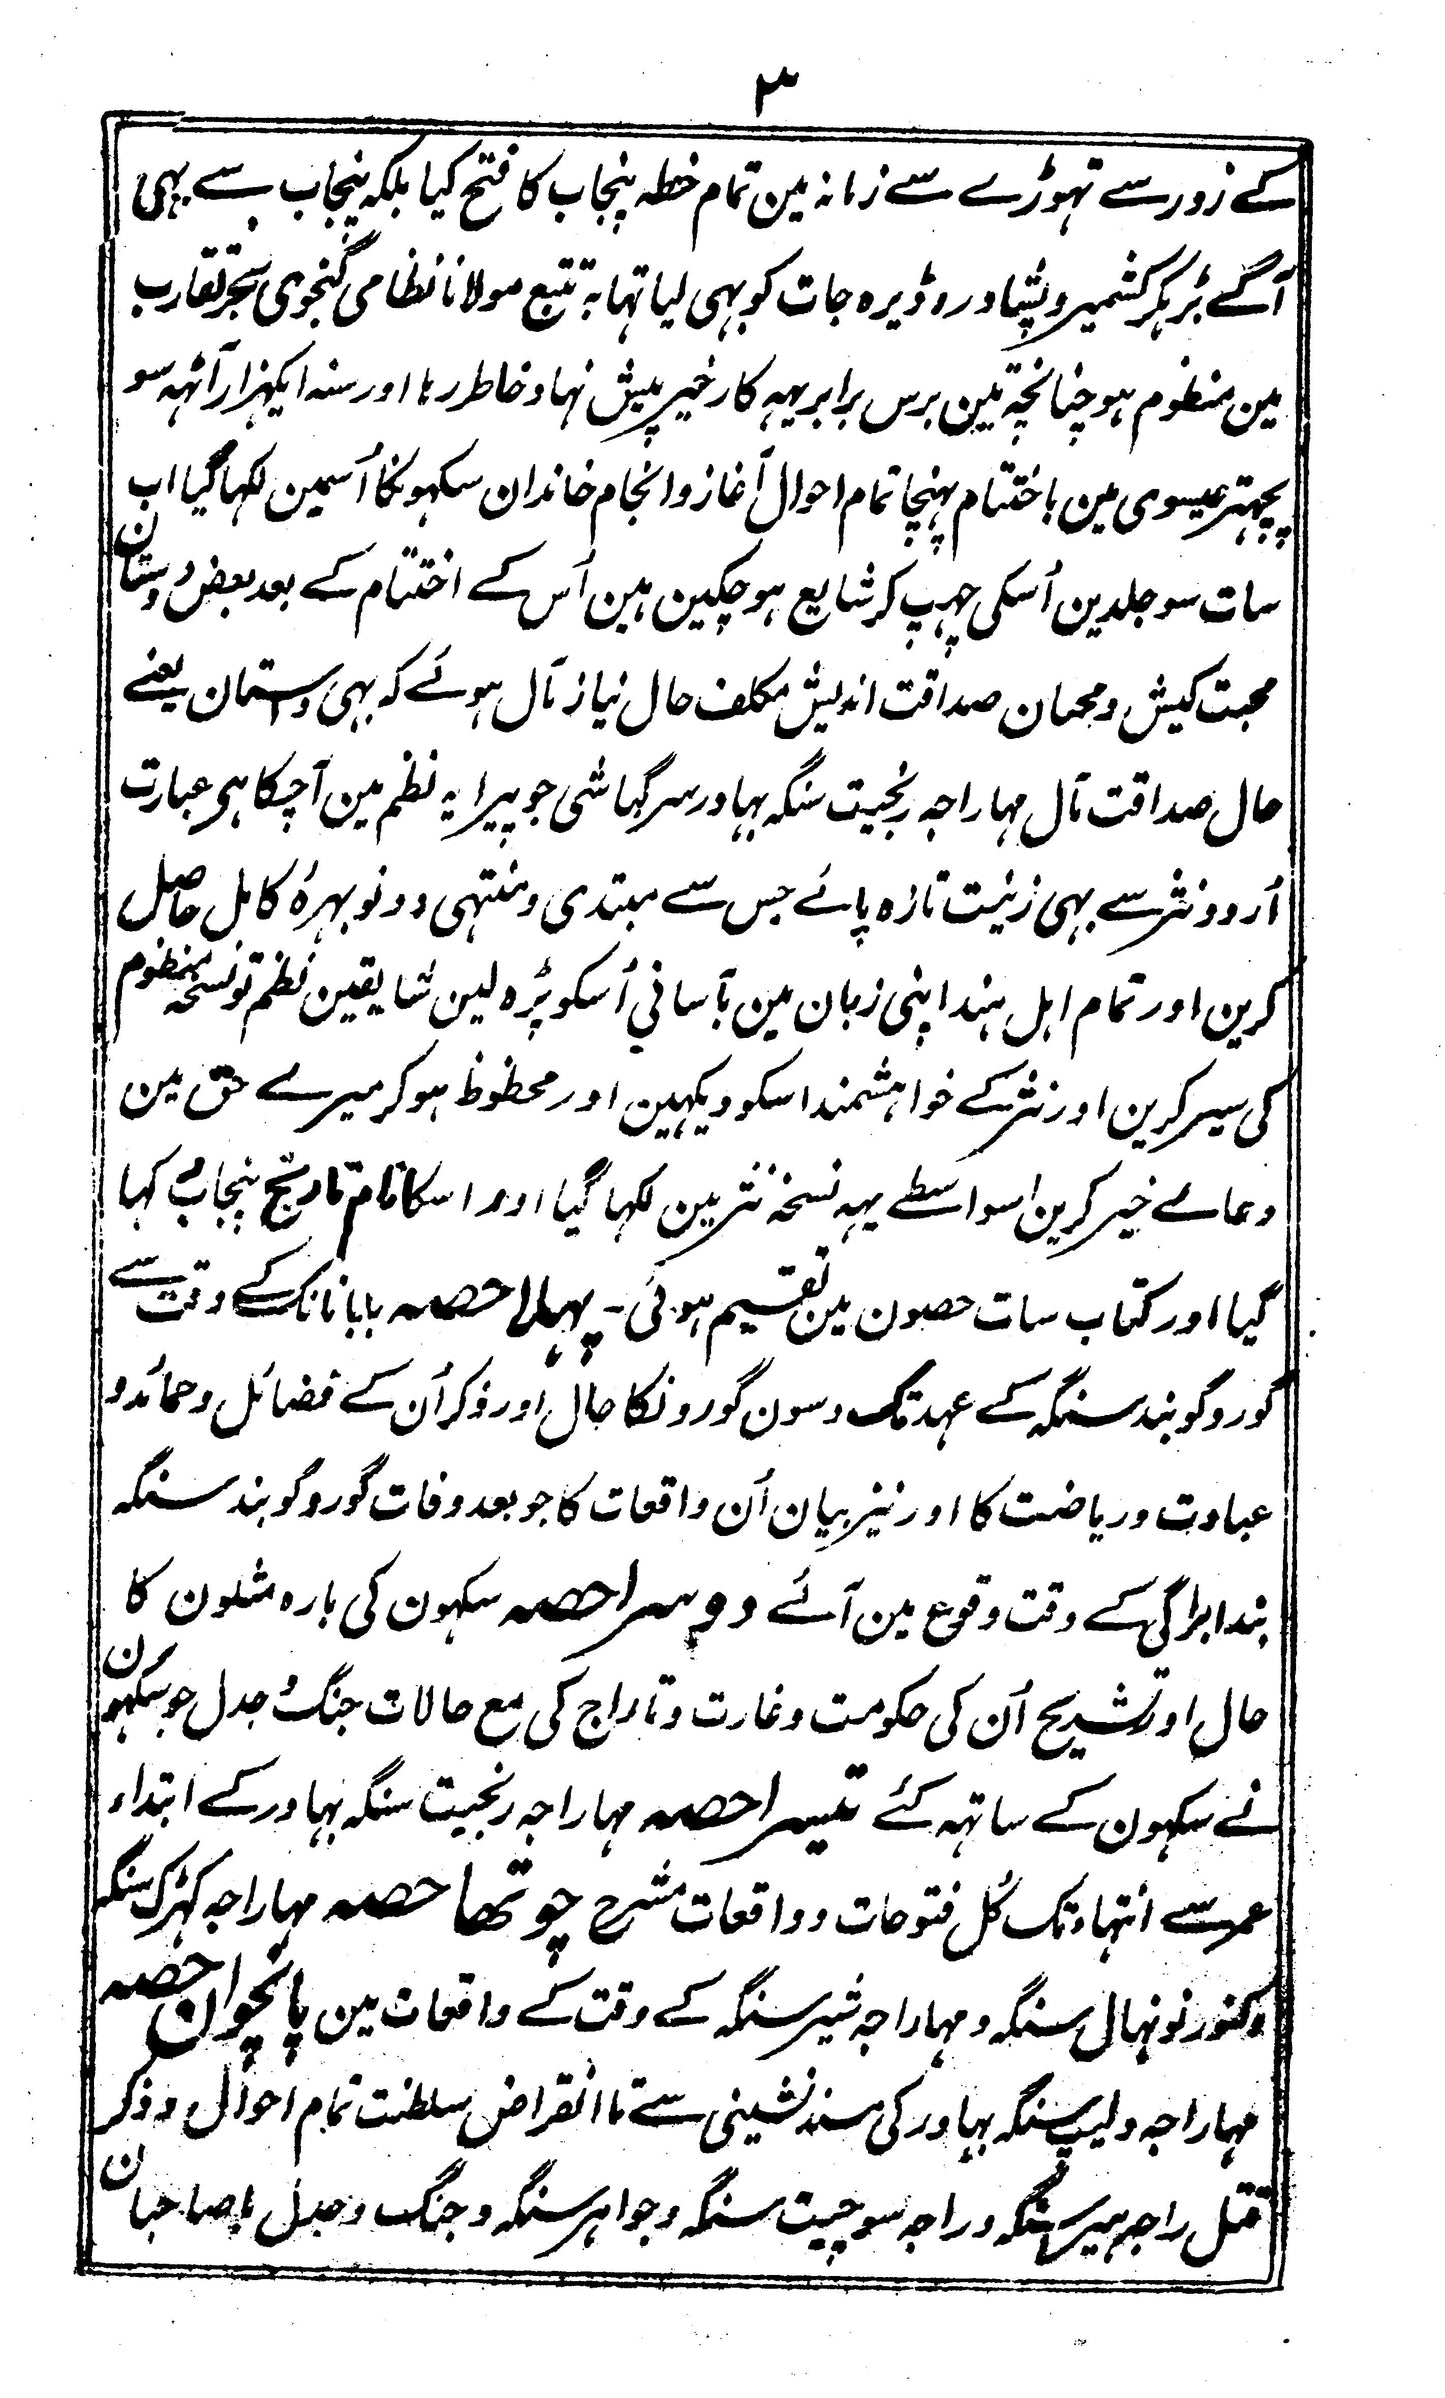 ۳
کے زور سے تہوڑے سے زمانہ مین تمام خطہ پنجاب کا فتح کیا بلکہ پنجاب سے بہی
آگے بڑہکر کشمیر و پشاور و ڈیرہ جات کو بہی لیا تہا بہ تتبع مولانا نظامی گنجوی بحر تقارب
مین منظوم ہو چنانچہ تین برس برابر یہہ کار خیر پیش نہاد خاطر رہا اور سنہ ایکہزار آٹہہ سو
پچہتر عیسوی مین باختتام پہنچا تمام احوال آغاز و انجام خاندان سکہونکا اُسمین لکہا گیا اب
سات سو جلدین اُسکی چہپ کر شایع ہو چکین ہین اُس کے اختتام کے بعد بعض دوستان
محبت کیش و محبان صداقت اندیش مکلف حال نیاز مآل ہوئے کہ بہی داستان یعنے
حال صداقت مآل مہاراجہ رنجیت سنگہ بہادر سرگباشی جو پیرایہ نظم مین آچکا ہی عبارت
اُردو نثر سے بہی زینت تازہ پائے جس سے مبتدی و منتہی دونو بہرۂ کامل حاصل
کرین اور تمام اہل ہند اپنی زبان مین بآسانی اُسکو پڑہ لین شایقین نظم تو نسخہ منظوم
کی سیر کرین اور نثر کے خواہشمند اسکو دیکہین اور محظوظ ہوکر میرے حق مین
دعاے خیر کرین اسواسطے یہہ نسخہ نثر مین لکہا گیا اور اسکا نام تاریخ پنجاب کہا
گیا اور کتاب سات حصون مین تقسیم ہوئی ۔ پہلا حصہ بابا نانک کے وقت سے
گورو گوبند سنگہ کے عہد تک دسون گورونکا حال اور ذکر اُن کے فضائل و حمائد و
عبادت و ریاضت کا اور نیز بیان اُن واقعات کا جو بعد وفات گورو گوبند سنگہ
بندا براگی کے وقت وقوع مین آئے دوسرا حصہ سکہون کی بارہ مثلون کا
حال اور تشریح اُن کی حکومت و غارت و تاراج کی مع حالات جنگ و جدل جو سکہون
نے سکہون کے ساتہہ کئے تیسرا حصہ مہاراجہ رنجیت سنگہ بہادر کے ابتداء
عمر سے انتہاء تک کُل فتوحات و واقعات مشرح چوتھا حصہ مہاراجہ کہڑک سنگہ
و کنور نونہال سنگہ و مہاراجہ شیر سنگہ کے وقت کے واقعات مین پانچوان حصہ
مہاراجہ دلیپ سنگہ بہادر کی مسند نشینی سے تا انقراض سلطنت تمام احوال و ذکر
قتل راجہ ہیرا سنگہ و راجہ سوچیت سنگہ و جواہر سنگہ و جنگ و جدل با صاحبان